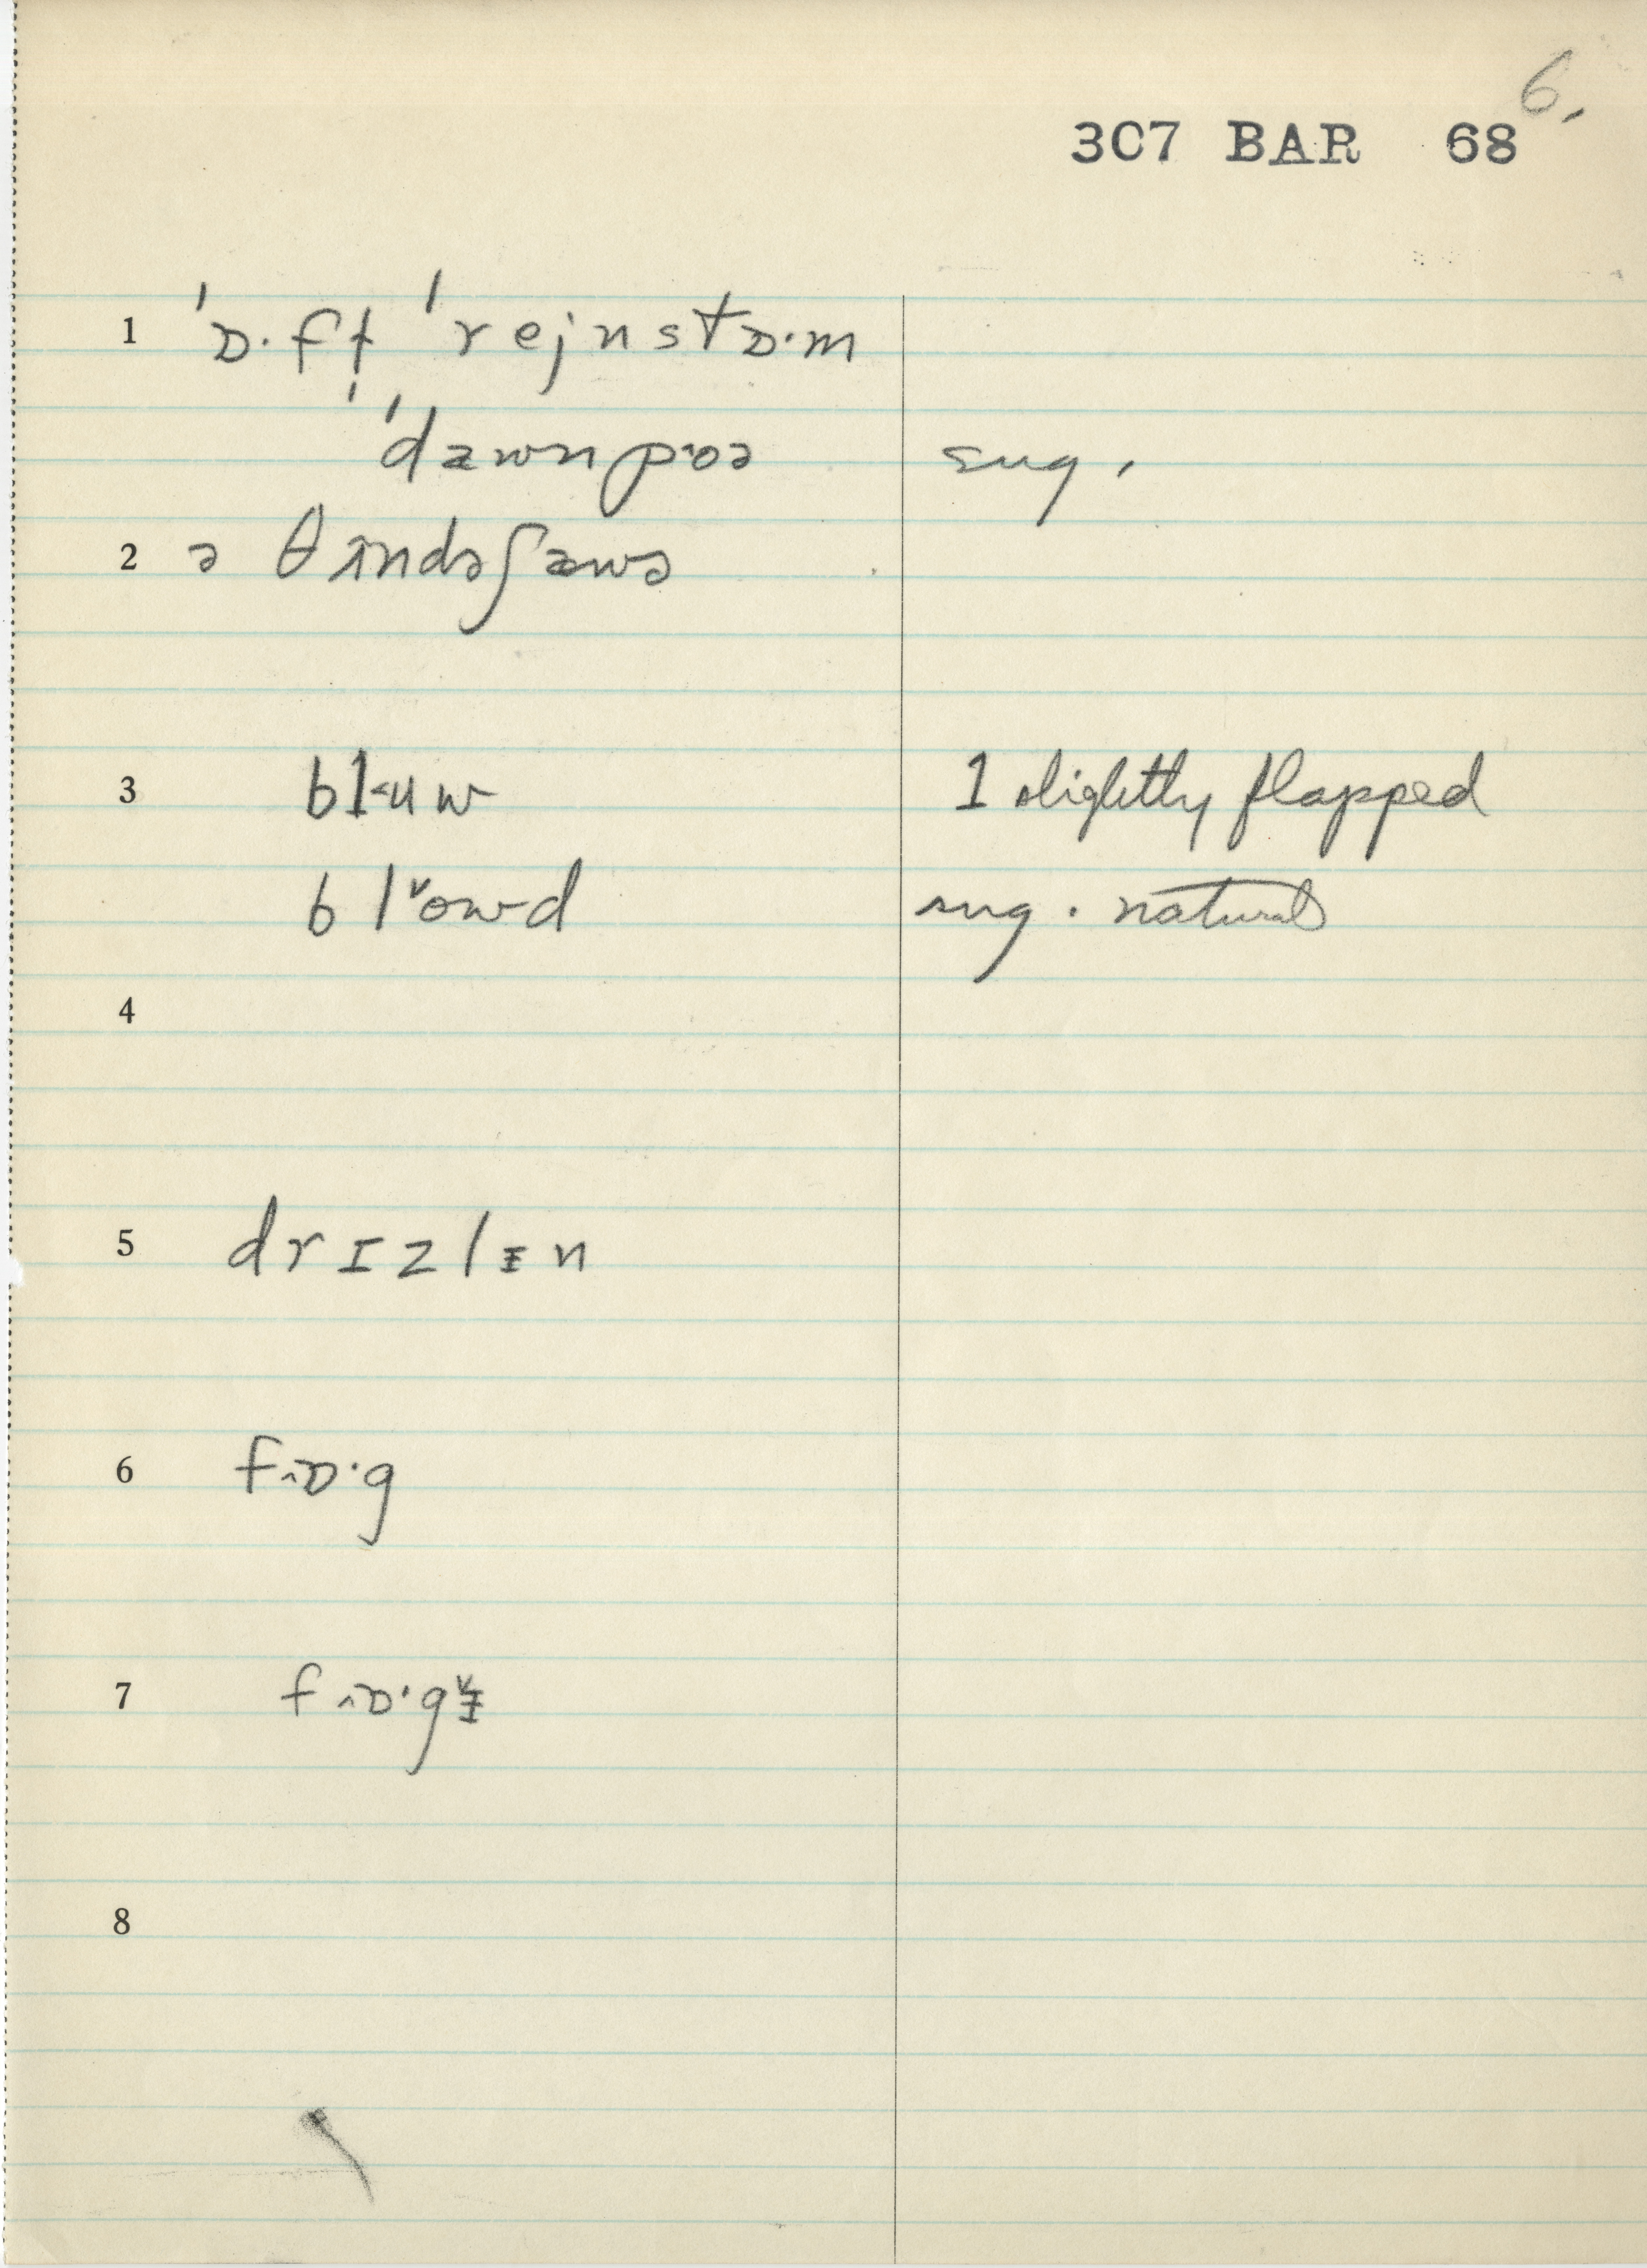 6.
3C7 BAR 68
1 ˈɒ·fṭ ˈrejnstɒ·m
ˈdæwnpoə sug.
2 ə θɪndəʃæwə
3 bl˂uw l slightly flapped
bl˅owd sug. natural
4
5 drɪzlɪ̵n
6 f˄ɒ·g
7 f˄ɒ·g˅ɪ̵
8